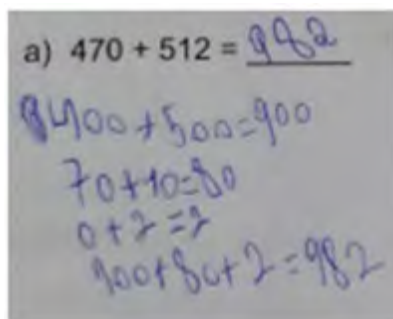 a) 470 + 512 = 982
400+500=900
70+10=80
0+2=2
900+80+2=982